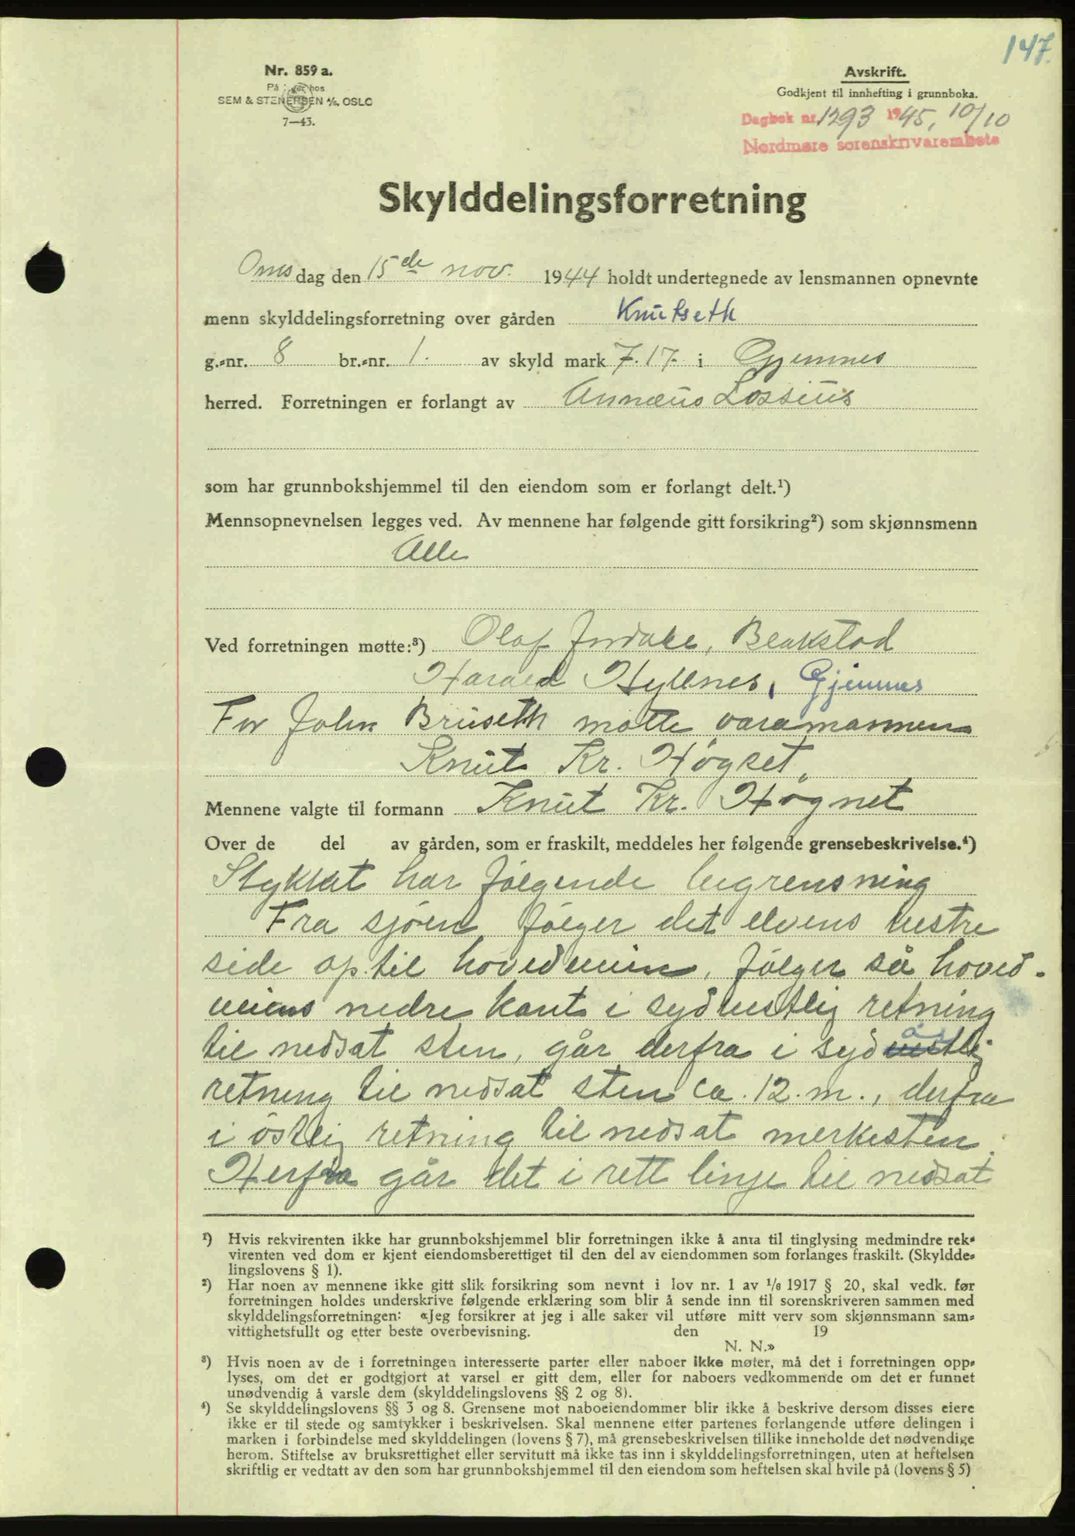 147.
Nr. 859 a.
På lager hos
SEM & STENERSEN A/S, OSLO
7—43.
Avskrift.
Godkjent til innhefting i grunnboka.
Dagbok nr. 1293 1945, 10/10
Nordmøre sorenskrivarembete
Skylddelingsforretning
Onsdag den 15de nov. 1944 holdt undertegnede av lensmannen opnevnte
menn skylddelingsforretning over gården Knutseth
g.-nr. 8 br.-nr. 1. av skyld mark 7.17. i Gjemnes
herred. Forretningen er forlangt av Annæus Lossius
som har grunnbokshjemmel til den eiendom som er forlangt delt.¹)
Mennsopnevnelsen legges ved. Av mennene har følgende gitt forsikring²) som skjønnsmenn
Alle
Ved forretningen møtte:³) Olaf Jordale, Blakstad
Harald Hyllnes, Gjemnes
For John Bruseth møtte varamannen
Knut Kr. Høgset.
Mennene valgte til formann Knut Kr. Høgset
Over de del av gården, som er fraskilt, meddeles her følgende grensebeskrivelse.⁴)
Stykket har følgende begrensning
Fra sjøen følger det elvens vestre
side op til hovedveien, følger så hoved-
veiens nedre kant i sydvestlig retning
til nedsat sten, går derfra i sydøstlig
retning til nedsat sten ca. 12. m., derfra
i østlig retning til nedsat merkesten.
Herfra går det i rett linje til nedsat
¹) Hvis rekvirenten ikke har grunnbokshjemmel blir forretningen ikke å anta til tinglysing medmindre rek-
virenten ved dom er kjent eiendomsberettiget til den del av eiendommen som forlanges fraskilt. (Skyldde-
lingslovens § 1).
²) Har noen av mennene ikke gitt slik forsikring som nevnt i lov nr. 1 av 1/6 1917 § 20, skal vedk. før
forretningen holdes underskrive følgende erklæring som blir å sende inn til sorenskriveren sammen med
skylddelingsforretningen: «Jeg forsikrer at jeg i alle saker vil utføre mitt verv som skjønnsmann sam-
vittighetsfullt og etter beste overbevisning. den 19
N. N.»
³) Hvis noen av de i forretningen interesserte parter eller naboer ikke møter, må det i forretningen opp-
lyses, om det er godtgjort at varsel er gitt dem, eller for naboers vedkommende om det er funnet
unødvendig å varsle dem (skylddelingslovens §§ 2 og 8).
⁴) Se skylddelingslovens §§ 3 og 8. Grensene mot naboeiendommer blir ikke å beskrive dersom disses eiere
ikke er til stede og samtykker i beskrivelsen. Skal mennene etter partenes forlangende utføre delingen i
marken i forbindelse med skylddelingen (lovens § 7), må grensebeskrivelsen tillike inneholde det nødvendige
herom. Stiftelse av bruksrettighet eller servitutt må ikke tas inn i skylddelingsforretningen, uten at heftelsen
skriftlig er vedtatt av den som har grunnbokshjemmel til den eiendom som heftelsen skal hvile på (lovens § 5)